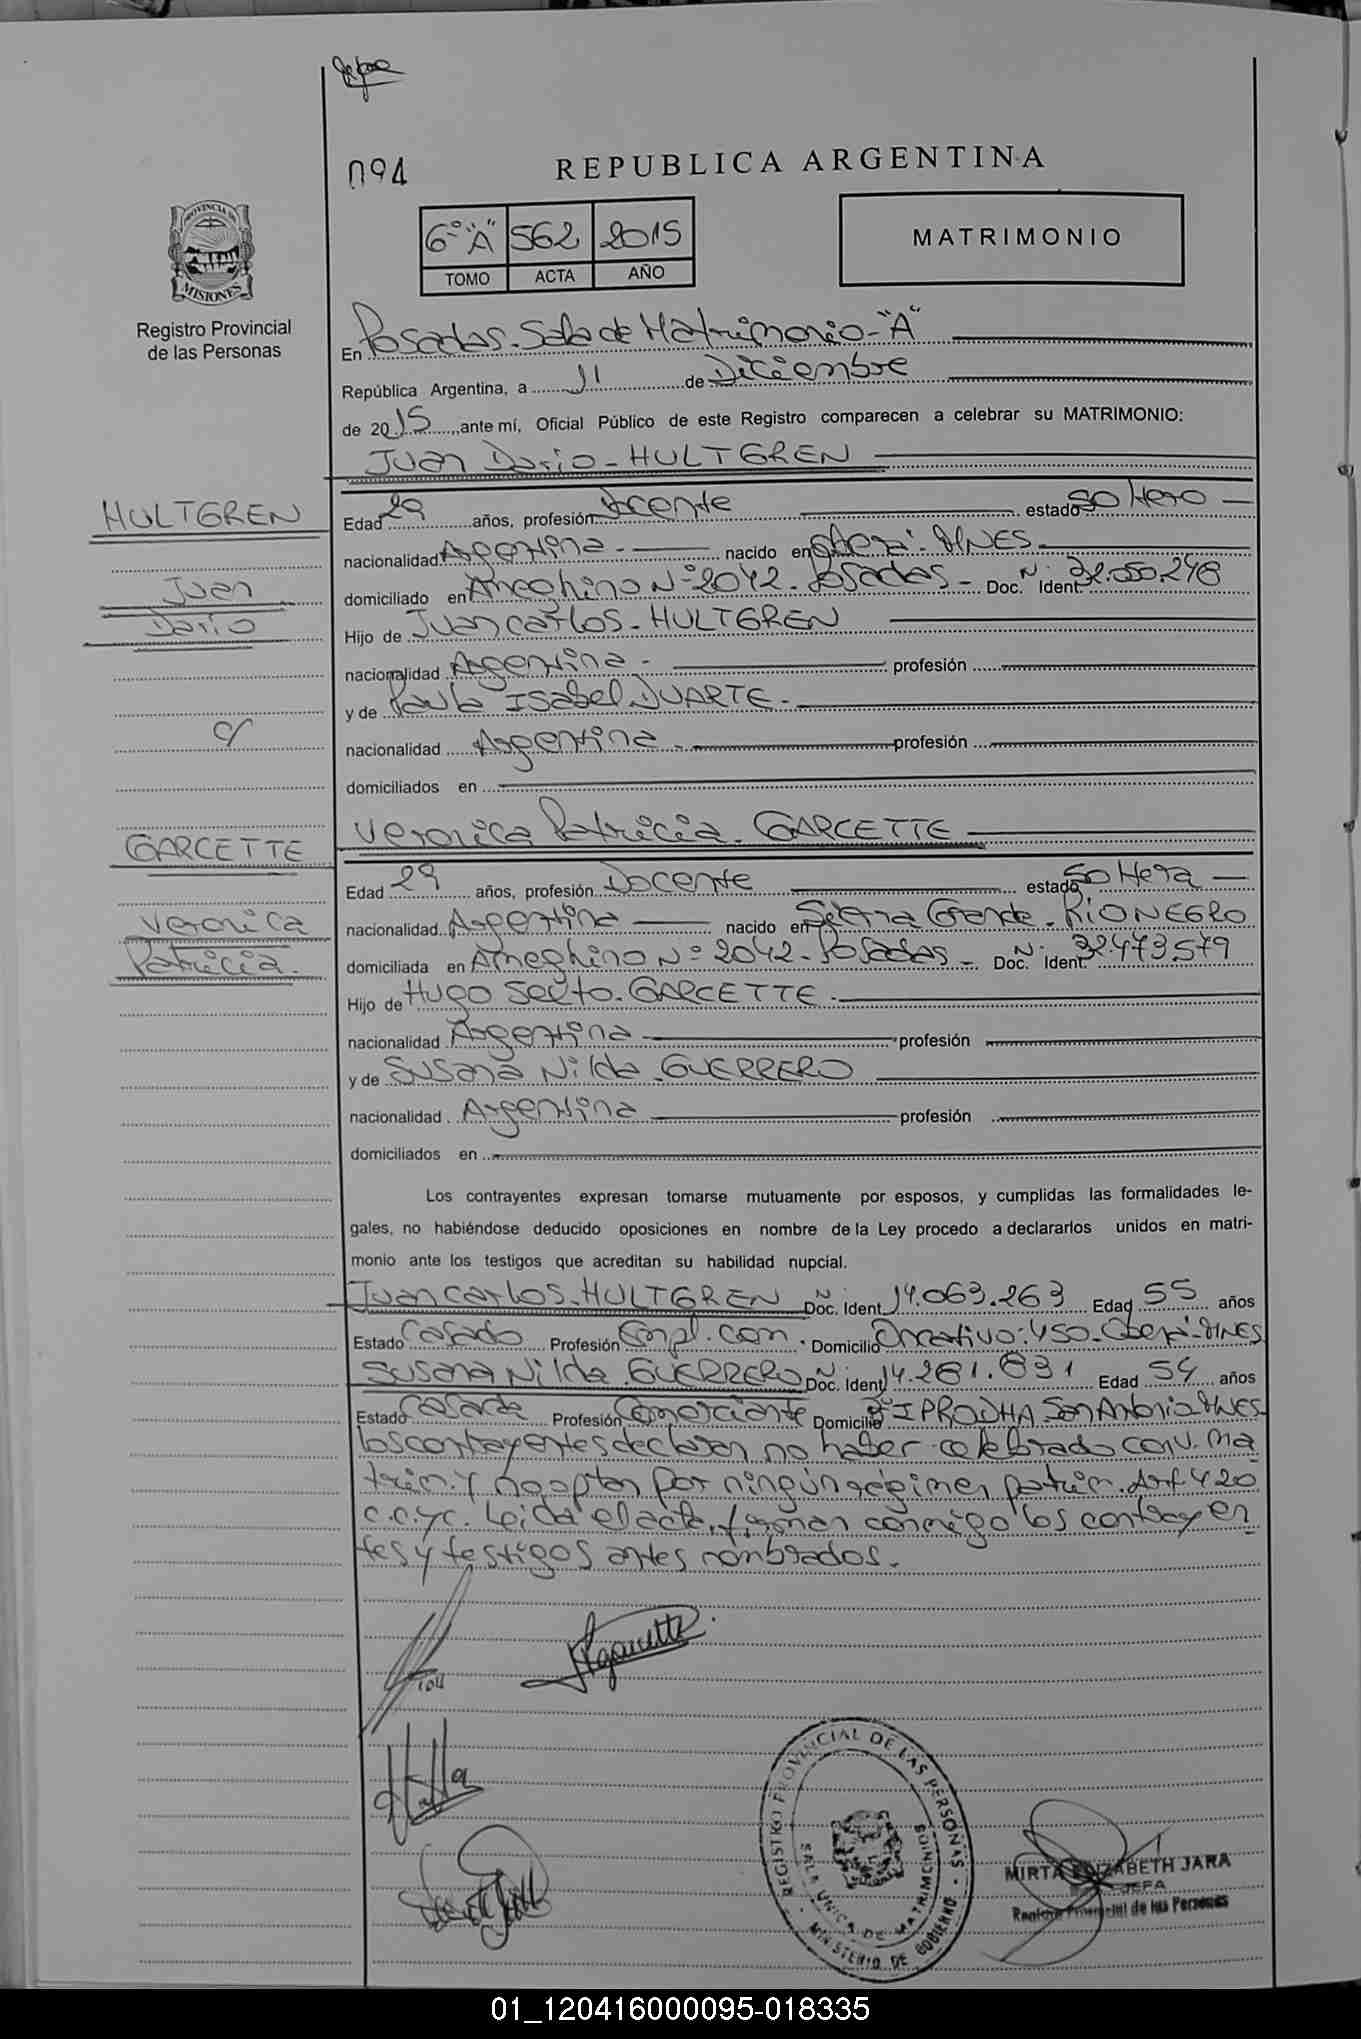 094
REPUBLICA ARGENTINA
PROVINCIA DE
MISIONES
Registro Provincial
de las Personas
6º "A" 562 2015
TOMO ACTA AÑO
MATRIMONIO
En Posadas. Sala de Matrimonio-"A"
República Argentina, a 11 de Diciembre
de 2015, ante mí, Oficial Público de este Registro comparecen a celebrar su MATRIMONIO:
Juan Dario - HULTGREN
HULTGREN
Juan
Dario
c/
GARCETTE
Veronica
Patricia.
Edad 29 años, profesión Docente estado soltero
nacionalidad Argentina nacido en Oberá - MNES.
domiciliado en Ameghino Nº 2042 - Posadas - Doc. Ident. Nº 32.050.248
Hijo de Juan Carlos - HULTGREN
nacionalidad Argentina - profesión
y de Paula Isabel DUARTE -
nacionalidad Argentina - profesión
domiciliados en
Veronica Patricia - GARCETTE
Edad 29 años, profesión Docente estado soltera
nacionalidad Argentina nacido en Sierra Grande - RIO NEGRO
domiciliada en Ameghino Nº 2042 - Posadas - Doc. Ident. Nº 32.473.579
Hijo de Hugo Sexto - GARCETTE -
nacionalidad Argentina profesión
y de Susana Nilda - GUERRERO
nacionalidad Argentina profesión
domiciliados en
Los contrayentes expresan tomarse mutuamente por esposos, y cumplidas las formalidades le-
gales, no habiéndose deducido oposiciones en nombre de la Ley procedo a declararlos unidos en matri-
monio ante los testigos que acreditan su habilidad nupcial.
Juan Carlos - HULTGREN Doc. Ident. Nº 14.063.263 Edad 55 años
Estado Casado Profesión Empl. Com. Domicilio 450 - Oberá - MNES
Susana Nilda - GUERRERO Doc. Ident. Nº 14.281.831 Edad 54 años
Estado Casada Profesión Comerciante Domicilio Bº IPRODHA San Antonio MNES
los contrayentes declaran no haber celebrado conv. ma
trim. y no optan por ningún régimen patrim. Art. 420
C.C.yC. Leida el acta, firman conmigo los contrayen
tes y testigos antes nombrados.
REGISTRO PROVINCIAL DE LAS PERSONAS
SALA UNICA DE MATRIMONIOS
MINISTERIO DE GOBIERNO
MIRTA ELIZABETH JARA
JEFA
Registro Provincial de las Personas
01_120416000095-018335